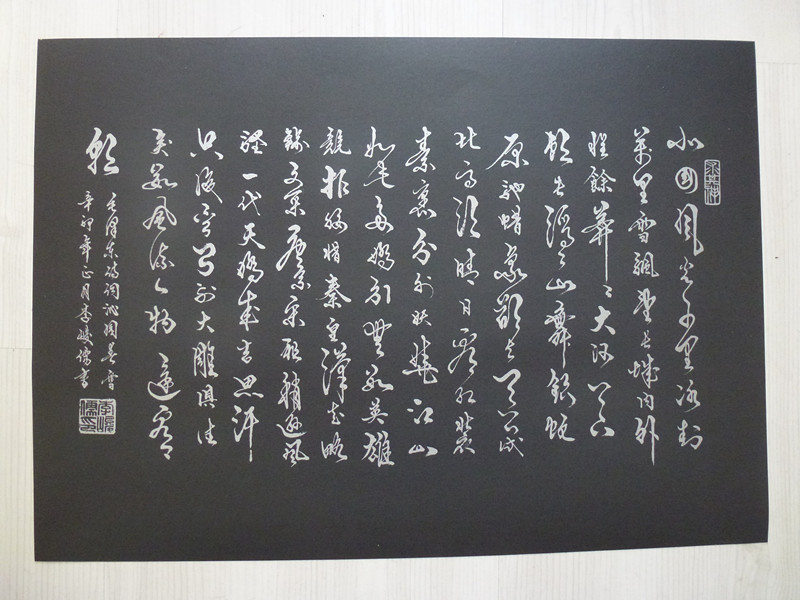 北國風光千里冰封
萬里雪飄望長城內外
惟餘莽〻大河上下
頓失滔〻山舞銀蛇
原馳蠟象欲與天公試
比高須晴日看紅裝
素裹分外妖嬈江山
如此多嬌引無數英雄
競折腰惜秦皇漢武略
輸文采唐宗宋祖稍遜風
騷一代天驕成吉思汗
只識彎弓射大雕俱往
矣數風流人物還看今
朝
毛澤東詩詞沁園春雪
辛卯年正月李峻儒書